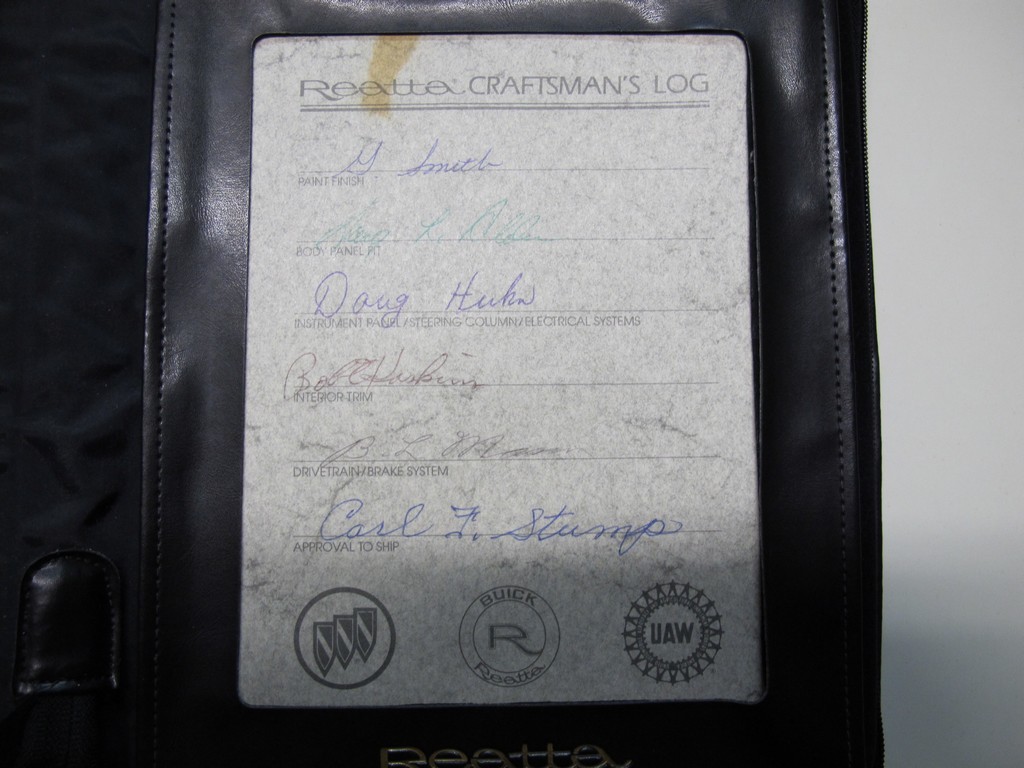 Reatta CRAFTSMAN'S LOG
G Smith
PAINT FINISH
L.
BODY PANEL FIT
Doug Huhn
INSTRUMENT PANEL/STEERING COLUMN/ELECTRICAL SYSTEMS
Bob
INTERIOR TRIM
B L
DRIVETRAIN/BRAKE SYSTEM
Carl F. Stump
APPROVAL TO SHIP
BUICK
R
Reatta
UAW
Reatta